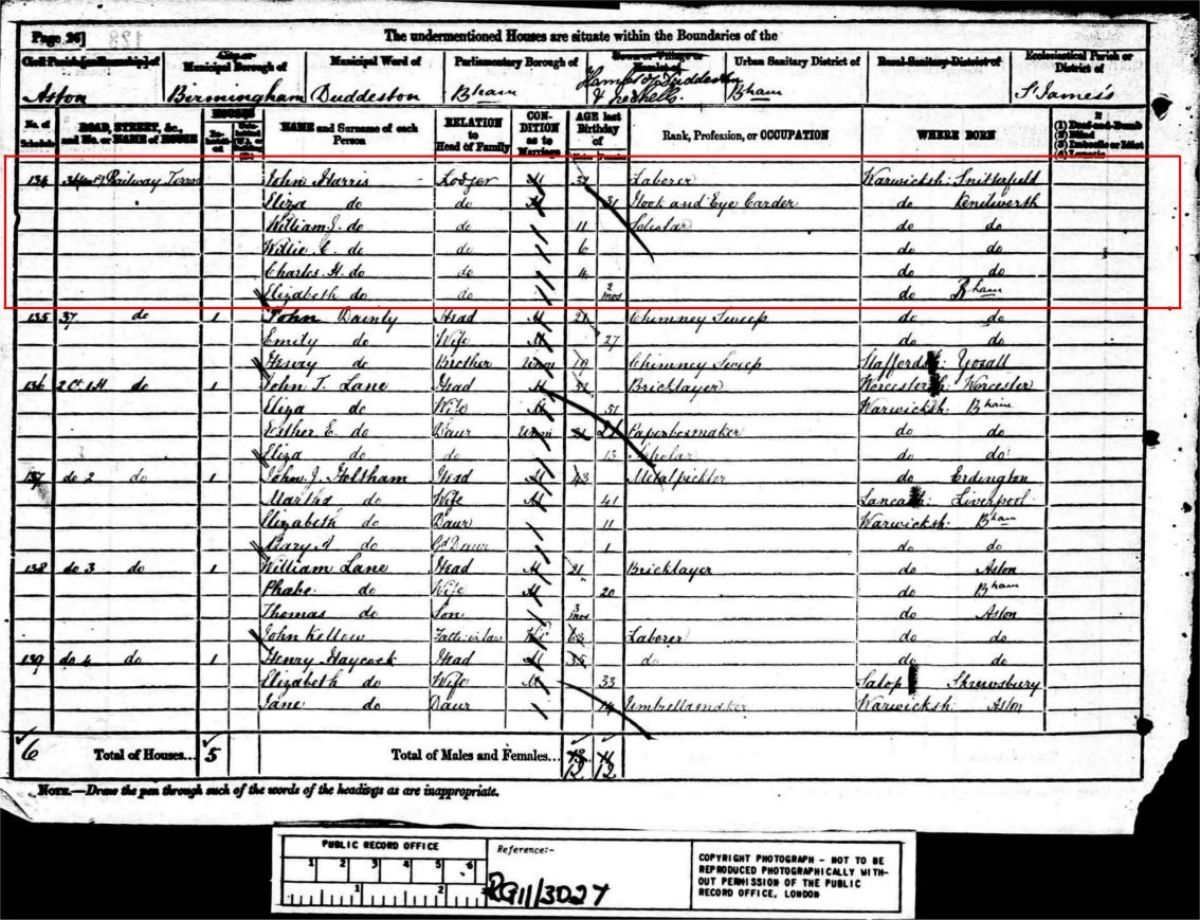 Page 26]
The undermentioned Houses are situate within the Boundaries of the
Civil Parish [or Township] of
City or Municipal Borough of
Municipal Ward of
Parliamentary Borough of
Town or Village or Hamlet of
Urban Sanitary District of
Rural Sanitary District of
Ecclesiastical Parish or District of
Aston Birmingham Duddeston Bham Hamlet of Duddeston & Nechells. Bham St James's
No. of Schedule ROAD, STREET, &c., and No. or NAME of HOUSE HOUSES NAME and Surname of each Person RELATION to Head of Family CONDITION as to Marriage AGE last Birthday of Rank, Profession, or OCCUPATION WHERE BORN If (1) Deaf-and-Dumb (2) Blind (3) Imbecile or Idiot (4) Lunatic
134 Railway Terrace John Harris Lodger M 37 Laborer Warwicksh: Snitterfield
Eliza do do M 31 Hook and Eye Carder do Kenilworth
William J. do do 11 Scholar do do
Willie C. do do 6 do do
Charles H. do do 4 do do
Elizabeth do do 2 mos do Bham
135 37 do 1 John Dainly Head M Chimney Sweep do do
Emily do Wife M 27 do do
Henry do Brother Unm 19 Chimney Sweep Staffordsh: Yoxall
136 2 Ct 1 H do 1 John T. Lane Head M 51 Bricklayer Worcestersh: Worcester
Eliza do Wife M 51 Warwicksh. Bham
Esther E. do Daur Unm 21 Paperboxmaker do do
Eliza do do 13 Scholar do do
137 do 2 do 1 John J. Holtham Head M 43 Metalpickler do Erdington
Martha do Wife M 41 Lancash: Liverpool
Elizabeth do Daur 11 Warwicksh. Bham
Mary A do Gd Daur 1 do do
138 do 3 do 1 William Lane Head M 21 Bricklayer do Aston
Phebe do Wife M 20 do Bham
Thomas do Son 3 mos do Aston
John Kellow Father in law Laborer do do
139 do 4 do 1 Henry Haycock Head M do do do
Elizabeth do Wife M 33 Salop Shrewsbury
Jane do Daur 14 Umbrellamaker Warwicksh Aston
6 Total of Houses... 5 Total of Males and Females... 12 12
NOTE.—Draw the pen through such of the words of the headings as are inappropriate.
PUBLIC RECORD OFFICE
1 2 3 4 5 6
1 2
Reference:-
RG11/3027
COPYRIGHT PHOTOGRAPH - NOT TO BE
REPRODUCED PHOTOGRAPHICALLY WITH-
OUT PERMISSION OF THE PUBLIC
RECORD OFFICE, LONDON